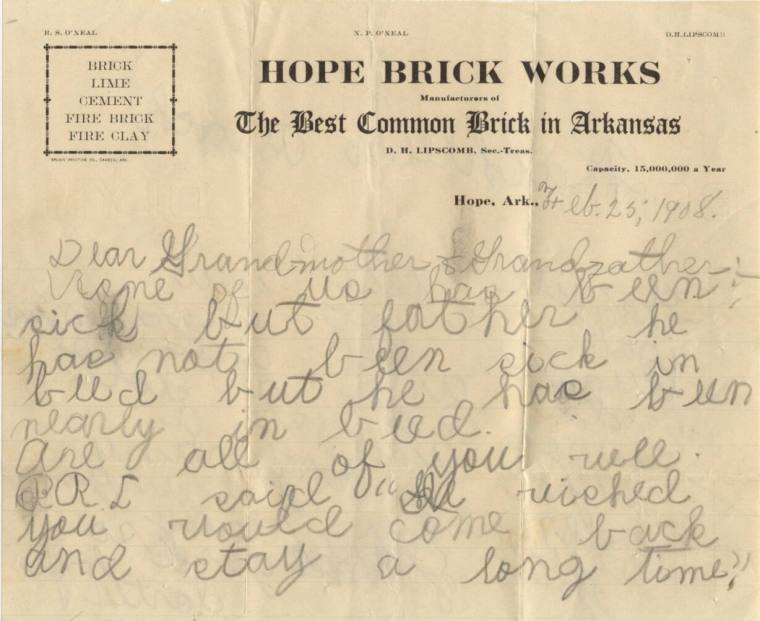 R. S. O'NEAL N. P. O'NEAL D.H.LIPSCOMB
BRICK
LIME
CEMENT
FIRE BRICK
FIRE CLAY
HOPE BRICK WORKS
Manufacturers of
The Best Common Brick in Arkansas
D. H. LIPSCOMB, Sec.-Treas.
Capacity, 15,000,000 a Year
Hope, Ark., Feb. 25, 1908.
Dear Grandmother & Grandfather:-
None of us has been
sick but father he
has not been sick in
bed but he has been
nearly in bed.
Are all of you well.
R.R.L said "I wished
you would come back
and stay a long time,"